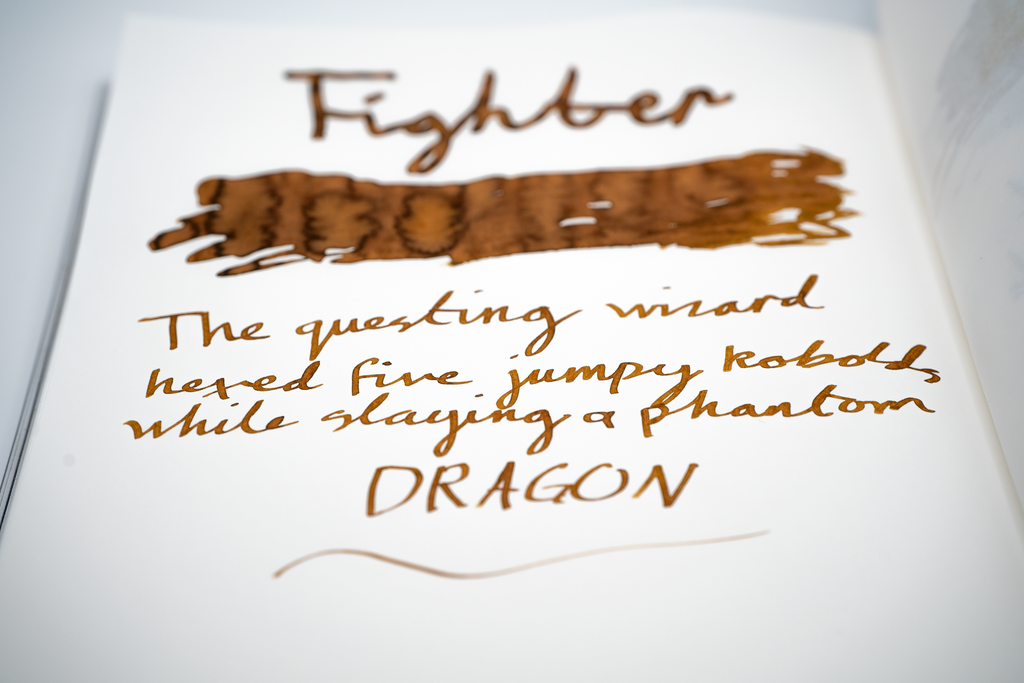 Fighter
The questing wizard
hexed five jumpy kobolds
while slaying a phantom
DRAGON